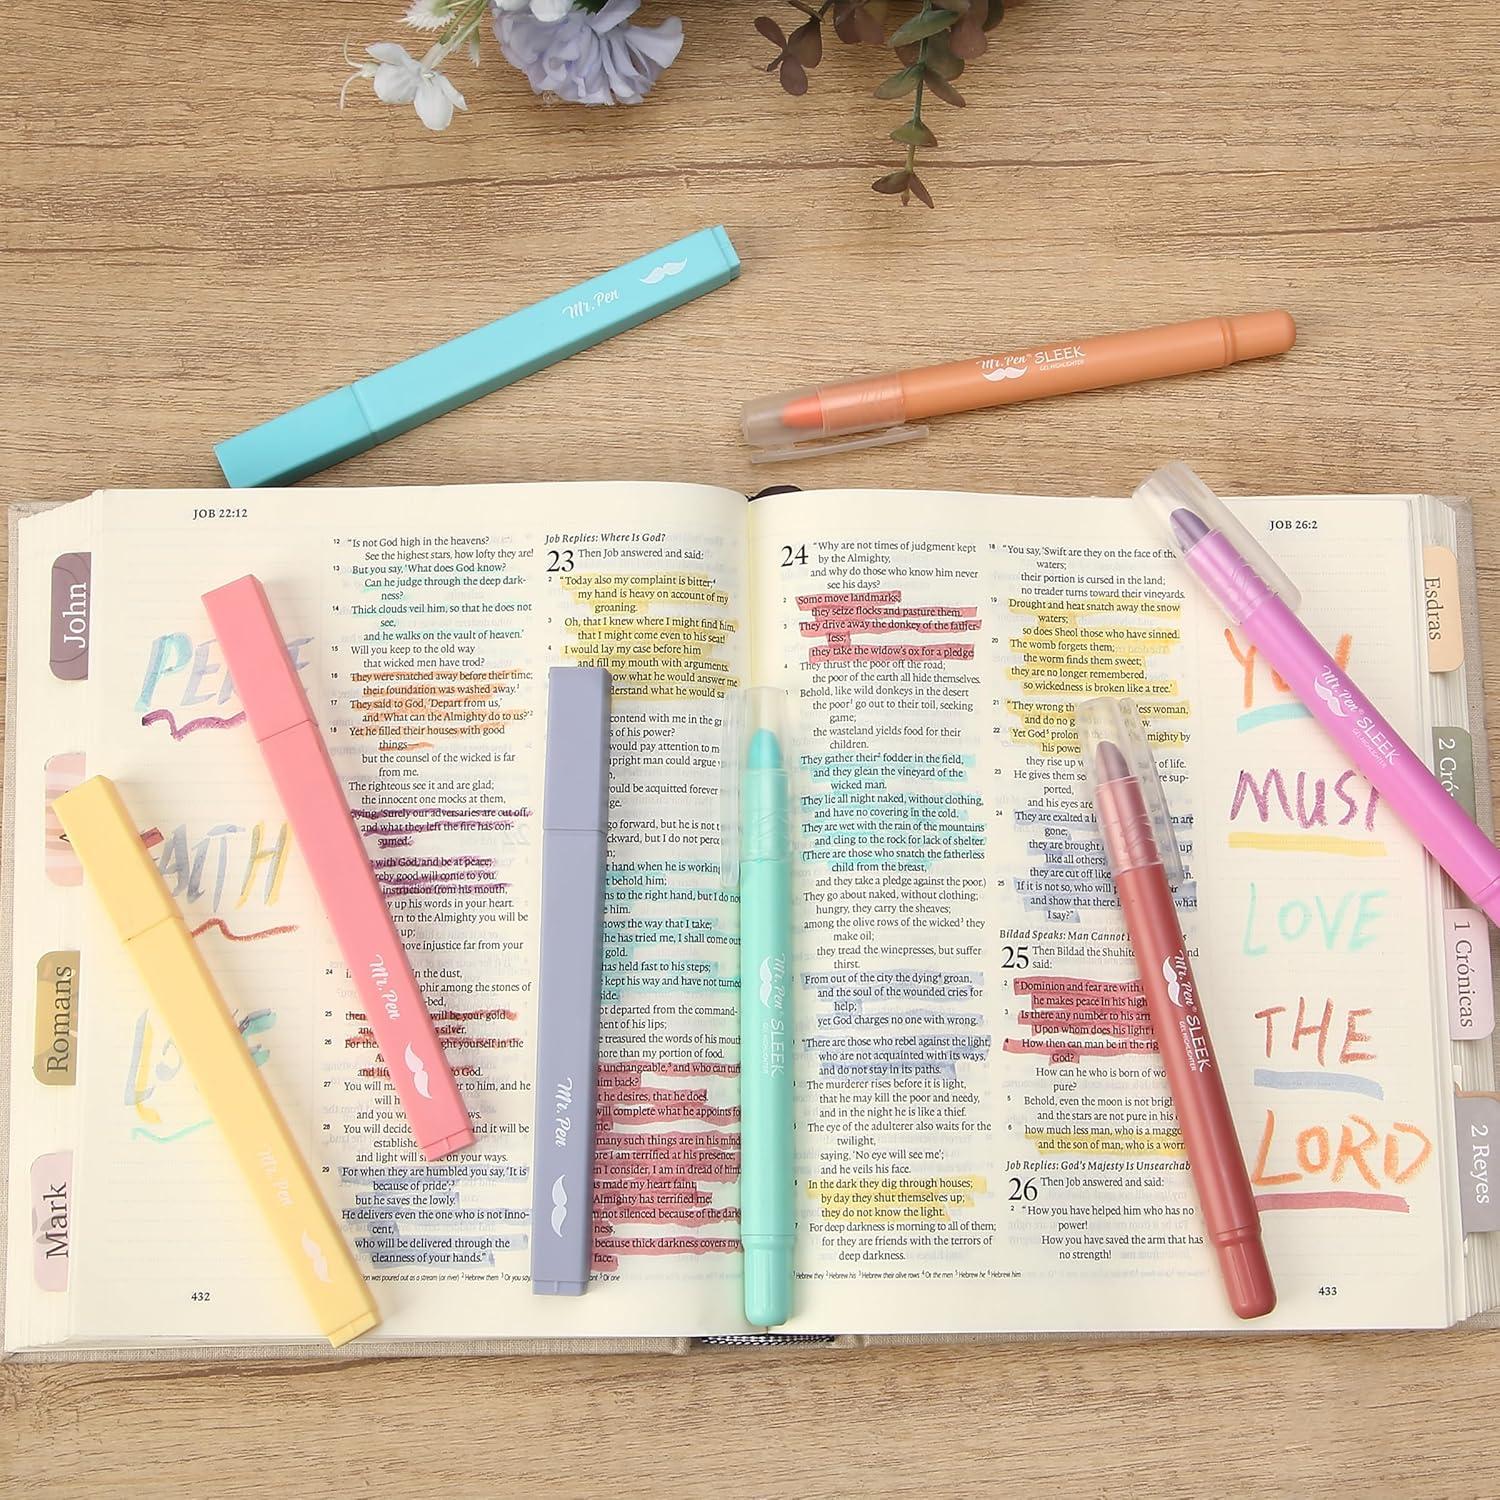 Mr. Pen
Mr. Pen SLEEK
GEL HIGHLIGHTER
JOB 22:12
12 "Is not God high in the heavens?
See the highest stars, how lofty they are!
13 But you say, 'What does God know?
Can he judge through the deep dark-
ness?
14 Thick clouds veil him, so that he does not
see,
and he walks on the vault of heaven.'
15 Will you keep to the old way
that wicked men have trod?
16 They were snatched away before their time;
their foundation was washed away.¹
17 They said to God, 'Depart from us,'
and 'What can the Almighty do to us?'²
18 Yet he filled their houses with good
things—
but the counsel of the wicked is far
from me.
The righteous see it and are glad;
the innocent one mocks at them,
saying, 'Surely our adversaries are cut off,
and what they left the fire has con-
sumed.'
with God, and be at peace;
good will come to you.
instruction from his mouth,
up his words in your heart.
to the Almighty you will be
up;
injustice far from your
24 in the dust,
among the stones of
-bed,
25 then will be your gold
silver.
26 For yourself in the
and God.
27 You will to him, and he
will
and you
28 You will decide and it will be
establish
and light will on your ways.
29 For when they are humbled you say, 'It is
because of pride';³
but he saves the lowly.
30 He delivers even the one who is not inno-
cent,
who will be delivered through the
cleanness of your hands."
432
Job Replies: Where Is God?
23 Then Job answered and said:
2 "Today also my complaint is bitter;⁴
my hand is heavy on account of my
groaning.
3 Oh, that I knew where I might find him,
that I might come even to his seat!
4 I would lay my case before him
and fill my mouth with arguments.
know what he would answer me
understand what he would sa
contend with me in the gr
of his power?
would pay attention to m
upright man could argue
would be acquitted forever
go forward, but he is not
backward, but I do not perce
hand when he is working
behold him;
to the right hand, but I do no
him.
knows the way that I take;
he has tried me, I shall come out
gold.
has held fast to his steps;
kept his way and have not turned
side.
not departed from the command-
ment of his lips;
treasured the words of his mouth
more than my portion of food.
unchangeable,⁵ and who can turn
him back?
he desires, that he does.
will complete what he appoints fo
me,
many such things are in his mind
I am terrified at his presence;
I consider, I am in dread of him
made my heart faint;
Almighty has terrified me;
not silenced because of the dark
ness,
because thick darkness covers my
face.
JOB 26:2
24 "Why are not times of judgment kept
by the Almighty,
and why do those who know him never
see his days?
2 Some move landmarks;
they seize flocks and pasture them.
3 They drive away the donkey of the father-
less;
they take the widow's ox for a pledge
4 They thrust the poor off the road;
the poor of the earth all hide themselves.
Behold, like wild donkeys in the desert
the poor¹ go out to their toil, seeking
game;
the wasteland yields food for their
children.
They gather their² fodder in the field,
and they glean the vineyard of the
wicked man.
They lie all night naked, without clothing,
and have no covering in the cold.
They are wet with the rain of the mountains
and cling to the rock for lack of shelter.
(There are those who snatch the fatherless
child from the breast,
and they take a pledge against the poor.)
They go about naked, without clothing;
hungry, they carry the sheaves;
among the olive rows of the wicked³ they
make oil;
they tread the winepresses, but suffer
thirst.
From out of the city the dying⁴ groan,
and the soul of the wounded cries for
help;
yet God charges no one with wrong.
"There are those who rebel against the light,
who are not acquainted with its ways,
and do not stay in its paths.
The murderer rises before it is light,
that he may kill the poor and needy,
and in the night he is like a thief.
The eye of the adulterer also waits for the
twilight,
saying, 'No eye will see me';
and he veils his face.
In the dark they dig through houses;
by day they shut themselves up;
they do not know the light.
For deep darkness is morning to all of them;
for they are friends with the terrors of
deep darkness.
18 "You say, 'Swift are they on the face of the
waters;
their portion is cursed in the land;
no treader turns toward their vineyards.
19 Drought and heat snatch away the snow
waters;
so does Sheol those who have sinned.
20 The womb forgets them;
the worm finds them sweet;
they are no longer remembered,
so wickedness is broken like a tree.'
21 "They wrong
woman,
and do no g
22 Yet God⁵ prolon mighty by
his power
they rise up of life.
23 He gives them sup-
ported,
and his eyes are
24 They are exalted a are
gone;
they are brought
like all others;
they are cut off like
25 If it is not so, who will
and show that there is
I say?"
Bildad Speaks: Man Cannot
25 Then Bildad the Shuhite
said:
2 "Dominion and fear are with
he makes peace in his high
3 Is there any number to his arm
Upon whom does his light
4 How then can man be in the rig
God?
How can he who is born of wo
pure?
5 Behold, even the moon is not brigh
and the stars are not pure in his
6 how much less man, who is a maggo
and the son of man, who is a worm
Job Replies: God's Majesty Is Unsearchab
26 Then Job answered and said:
2 "How you have helped him who has no
power!
How you have saved the arm that has
no strength!
¹ Hebrew they ² Hebrew his ³ Hebrew their olive rows ⁴ Or the men ⁵ Hebrew he ⁶ Hebrew him
433
John
Romans
Mark
LOVE
YOU
MUST
LOVE
THE
LORD
Esdras
1 Crónicas
2 Reyes
Mr. Pen
Mr. Pen
Mr. Pen
Mr. Pen SLEEK
GEL HIGHLIGHTER
Mr. Pen SLEEK
GEL HIGHLIGHTER
Mr. Pen SLEEK
GEL HIGHLIGHTER